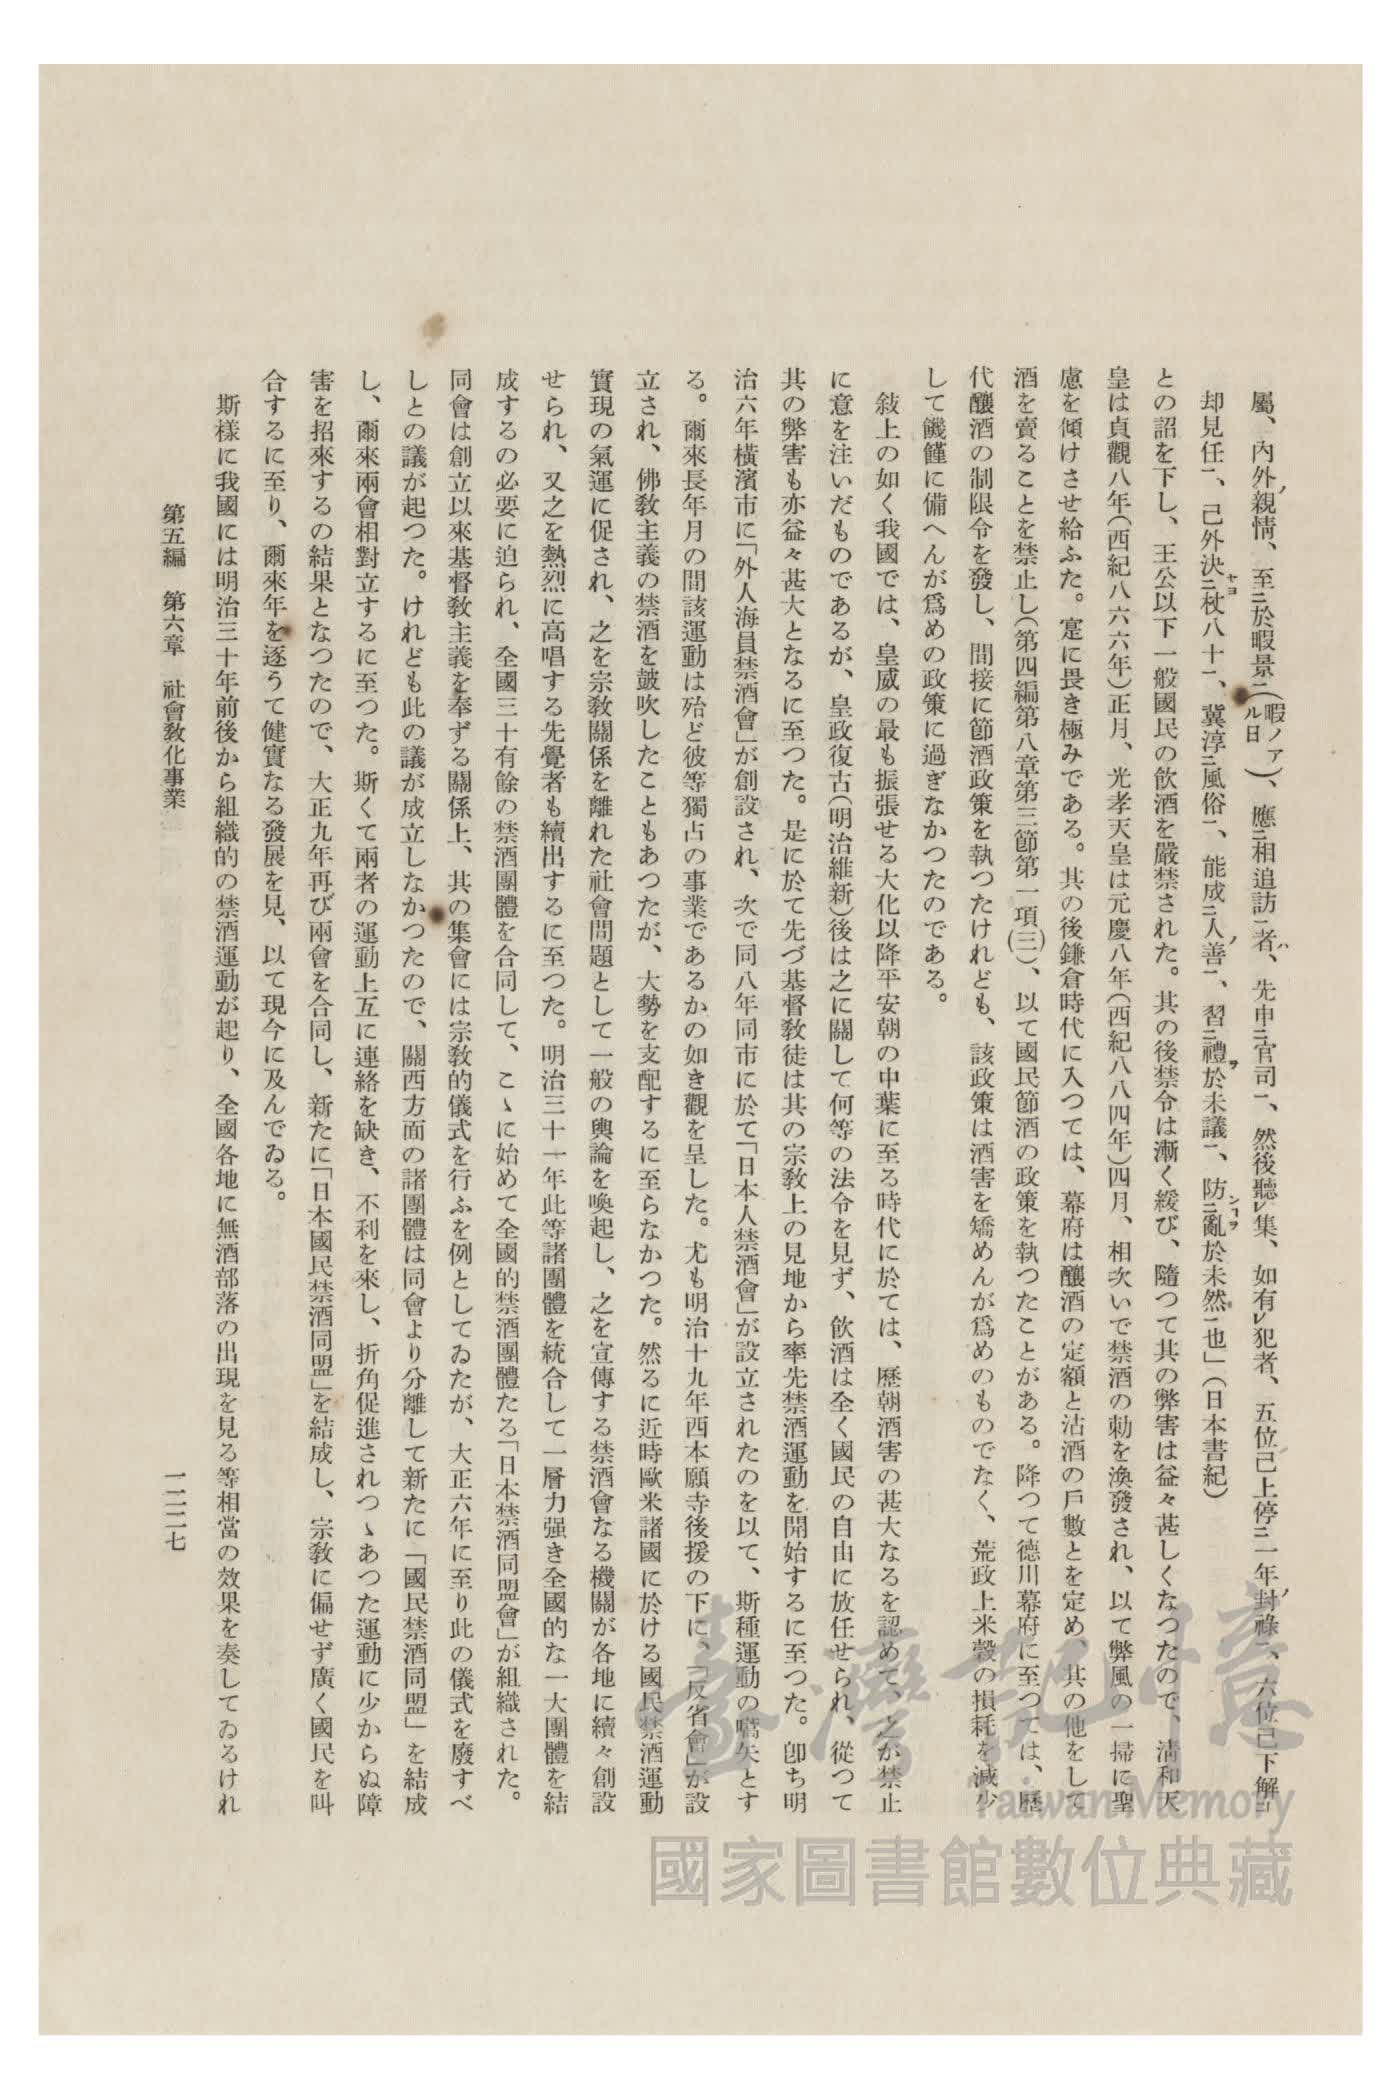 屬、內外親情、至ニ於暇景一(暇ノアル日)、應ニ相追訪一者、先申ニ官司一、然後聽レ集、如有レ犯者、五位己上停ニ一年封祿一、六位己下解ニ
却見任一、己外決ニ杖八十一、冀淳ニ風俗一、能成ニ人善一、習ニ禮於未議一、防ニ亂於未然一也」(日本書紀)
との詔を下し、王公以下一般國民の飮酒を嚴禁された。其の後禁令は漸く緩び、隨つて其の弊害は益々甚しくなつたので、淸和天
皇は貞觀八年(西紀八六六年)正月、光孝天皇は元慶八年(西紀八八四年)四月、相次いで禁酒の勅を渙發され、以て弊風の一掃に聖
慮を傾けさせ給ふた。寔に畏き極みである。其の後鎌倉時代に入つては、幕府は釀酒の定額と沽酒の戶數とを定め、其の他をして
酒を賣ることを禁止し(第四編第八章第三節第一項(三))、以て國民節酒の政策を執つたことがある。降つて德川幕府に至つては、歷
代釀酒の制限令を發し、間接に節酒政策を執つたけれども、該政策は酒害を矯めんが爲めのものでなく、荒政上米穀の損耗を減少
して饑饉に備へんが爲めの政策に過ぎなかつたのである。
敍上の如く我國では、皇威の最も振張せる大化以降平安朝の中葉に至る時代に於ては、歷朝酒害の甚大なるを認めて、之が禁止
に意を注いだものであるが、皇政復古(明治維新)後は之に關して何等の法令を見ず、飮酒は全く國民の自由に放任せられ、從つて
其の弊害も亦益々甚大となるに至つた。是に於て先づ基督敎徒は其の宗敎上の見地から率先禁酒運動を開始するに至つた。卽ち明
治六年橫濱市に「外人海員禁酒會」が創設され、次で同八年同市に於て「日本人禁酒會」が設立されたのを以て、斯種運動の嚆矢とす
る。爾來長年月の間該運動は殆ど彼等獨占の事業であるかの如き觀を呈した。尤も明治十九年西本願寺後援の下に、「反省會」が設
立され、佛敎主義の禁酒を皷吹したこともあつたが、大勢を支配するに至らなかつた。然るに近時歐米諸國に於ける國民禁酒運動
實現の氣運に促され、之を宗敎關係を離れた社會問題として一般の輿論を喚起し、之を宣傳する禁酒會なる機關が各地に續々創設
せられ、又之を熱烈に高唱する先覺者も續出するに至つた。明治三十一年此等諸團體を統合して一層力强き全國的な一大團體を結
成するの必要に迫られ、全國三十有餘の禁酒團體を合同して、こゝに始めて全國的禁酒團體たる「日本禁酒同盟會」が組織された。
同會は創立以來基督敎主義を奉ずる關係上、其の集會には宗敎的儀式を行ふを例としてゐたが、大正六年に至り此の儀式を廢すべ
しとの議が起つた。けれども此の議が成立しなかつたので、關西方面の諸團體は同會より分離して新たに「國民禁酒同盟」を結成
し、爾來兩會相對立するに至つた。斯くて兩者の運動上互に連絡を缺き、不利を來し、折角促進されつゝあつた運動に少からぬ障
害を招來するの結果となつたので、大正九年再び兩會を合同し、新たに「日本國民禁酒同盟」を結成し、宗敎に偏せず廣く國民を叫
合するに至り、爾來年を逐うて健實なる發展を見、以て現今に及んでゐる。
斯樣に我國には明治三十年前後から組織的の禁酒運動が起り、全國各地に無酒部落の出現を見る等相當の效果を奏してゐるけれ
第五編　第六章　社會敎化事業
一二二七
臺灣記憶
Taiwan Memory
國家圖書館數位典藏